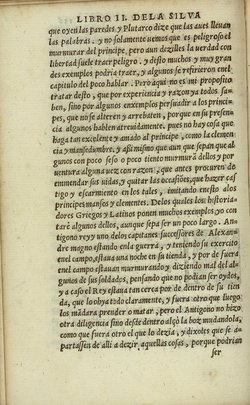 LIBRO II. DE LA SILVA
que oyen las paredes y Plutarco dize que las aues lleuan
las palabras. y no solamente vemos que es peligroso el
murmurar del principe, pero aun dezilles la verdad con
libertad suele traer peligro. y desto muchos y muy gran
des exemplos podria traer, y algunos se refirieron en el
capitulo del poco hablar. Pero aqui no es mi proposito
tratar desto, que por experiencia y razon ya todos sa-
ben, sino por algunos enxemplos persuadir a los princi-
pes, que no se alteren y arrebaten, porque en su presencia
algunos hablen atreuidamente. pues no hay cosa que
haga tan excelente y amado al principe, como la clemen
cia y mansedumbre. y assi mismo que aun que sepan que al
gunos con poco seso o poco tiento murmurã dellos y por
uentura alguna vez con razon, que antes procuren de
emendar sus vidas, y quitar las occasiões, que hazer cas
tigo y escarmiento en los tales, imitando en esto alos
principes mansos y clementes. Delos quales los historia
dores Griegos y Latinos ponen muchos exemplos. yo con
tarè algunos dellos, aunque sepa ser un poco largo. An-
tigono rey y uno delos capitanes successores de Alexan
dre magno estando en la guerra, y teniendo su exercito
en el campo, estaua una noche en su tienda, y por de fuera
en el campo estauan murmurando y diziendo mal del al-
gunos de sus soldados, pensando que no podian ser oydos,
y a caso el Rey estaua tan cerca por de dentro de su tien
da, que lo oyà todo claramente, y fuera otro que luego
los mãdara prender o matar, pero el Antigono no hizo
otra diligencia sino desde dentro alçò la boz mudandola,
como que fuera otro el que lo dezia, y dixoles que se a-
partassen de alli a dezir, aquellas cosas, porque podrian
ser